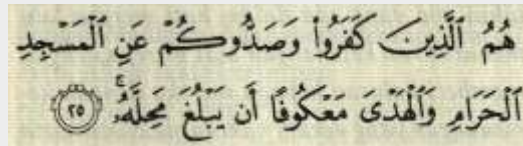 هُمُ ٱلَّذِينَ كَفَرُوا۟ وَصَدُّوكُمْ عَنِ ٱلْمَسْجِدِ
ٱلْحَرَامِ وَٱلْهَدْىَ مَعْكُوفًا أَن يَبْلُغَ مَحِلَّهُۥۚ ٢٥